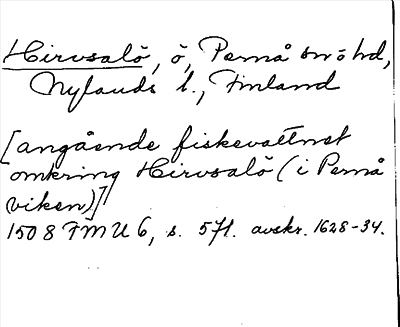 Hirvsalö, ö, Pernå sn o hd,
Nylands l., Finland
[angående fiskevattnet
omkring Hirvsalö (i Pernå
viken)]
1508 FMU 6, s. 57f. avskr. 1628-34.